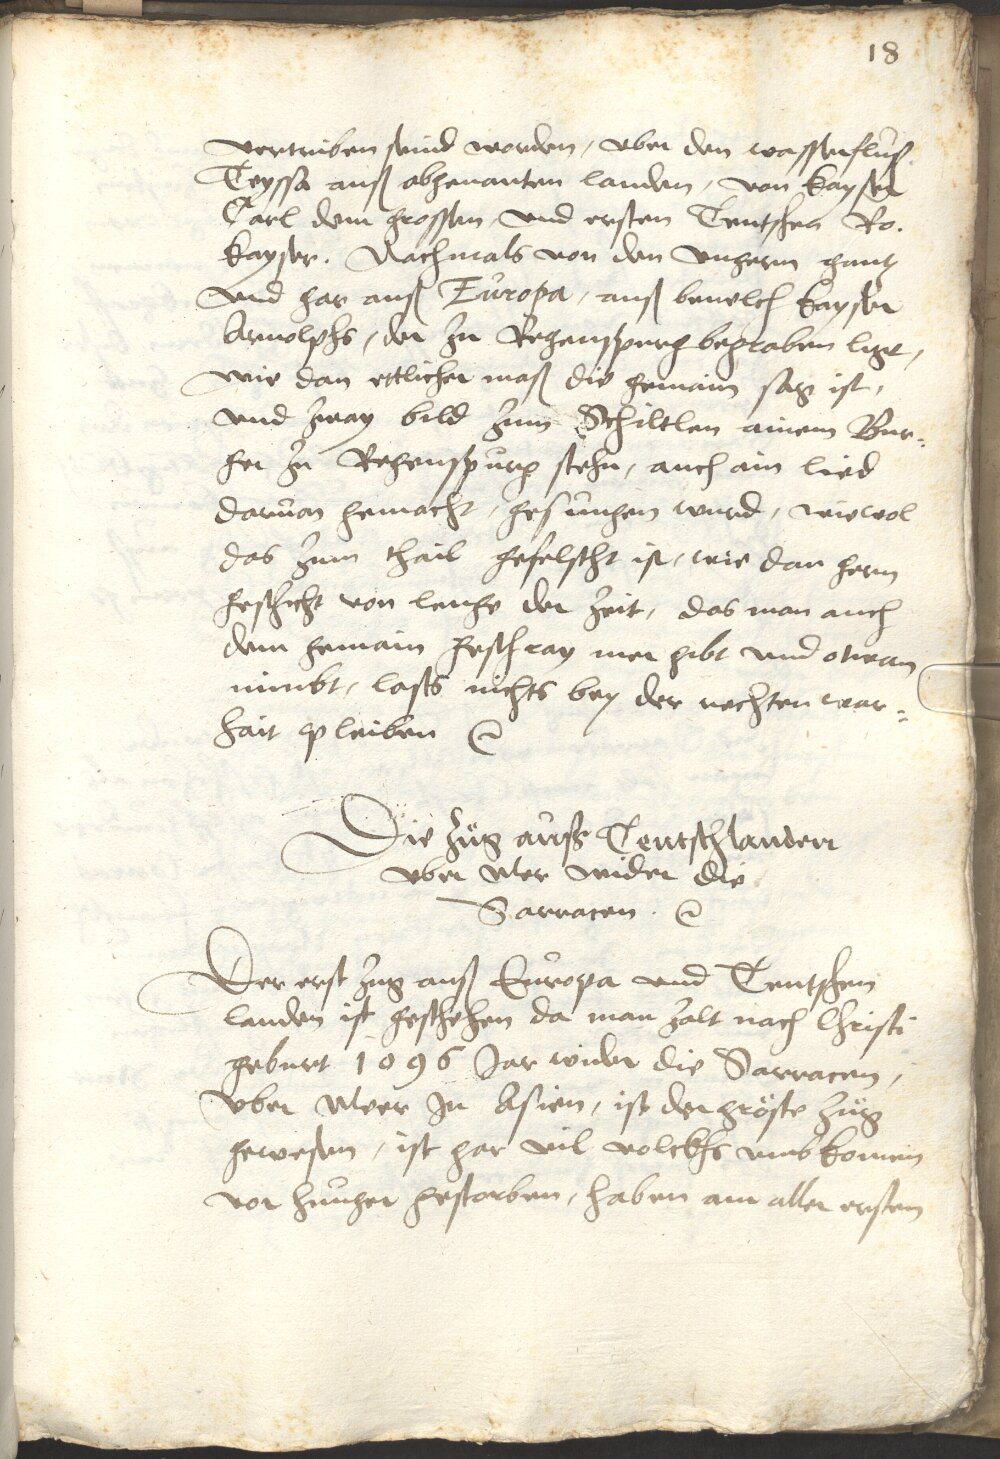 18
vertriben seind worden, vber den wasserfluß
Teyssa auß obgenanten landen, von Kayser
Carl dem grossen, vnd ersten Teutschen Ro.
Kayser. Nachmals von den vngern gantz
vnd gar auß Europa, auß bevelch Kayser
Arnolphs, der zu Regenspurg begraben ligt,
wie dan ettlicher maß die gemain sag ist,
vnd zway bild zum Schiltlen ainem Bur=
ger zu Regenspurg stehn, auch ain lied
daruon gemacht, gesungen wurd, wiewol
das zum thail gefelscht ist, wie dan gern
geschicht von lenge der zeit, das man auch
dem gemain geschray mer gibt vnd etwan
nimbt, lasts nichts bey der rechten war=
hait pleiben
Die Züg auß Teutschlanden
vber Mer wider die
Sarracen.
Der erst zug auß Europa vnd Teutschen
landen ist geschehen da man zalt nach Christi
geburt 1096 Jar wider die Sarracen,
vber Meer In Asien, ist der gröste züg
gewesen, ist gar vil volckhs vmbkomen
vor hunger gestorben, haben am aller ersten